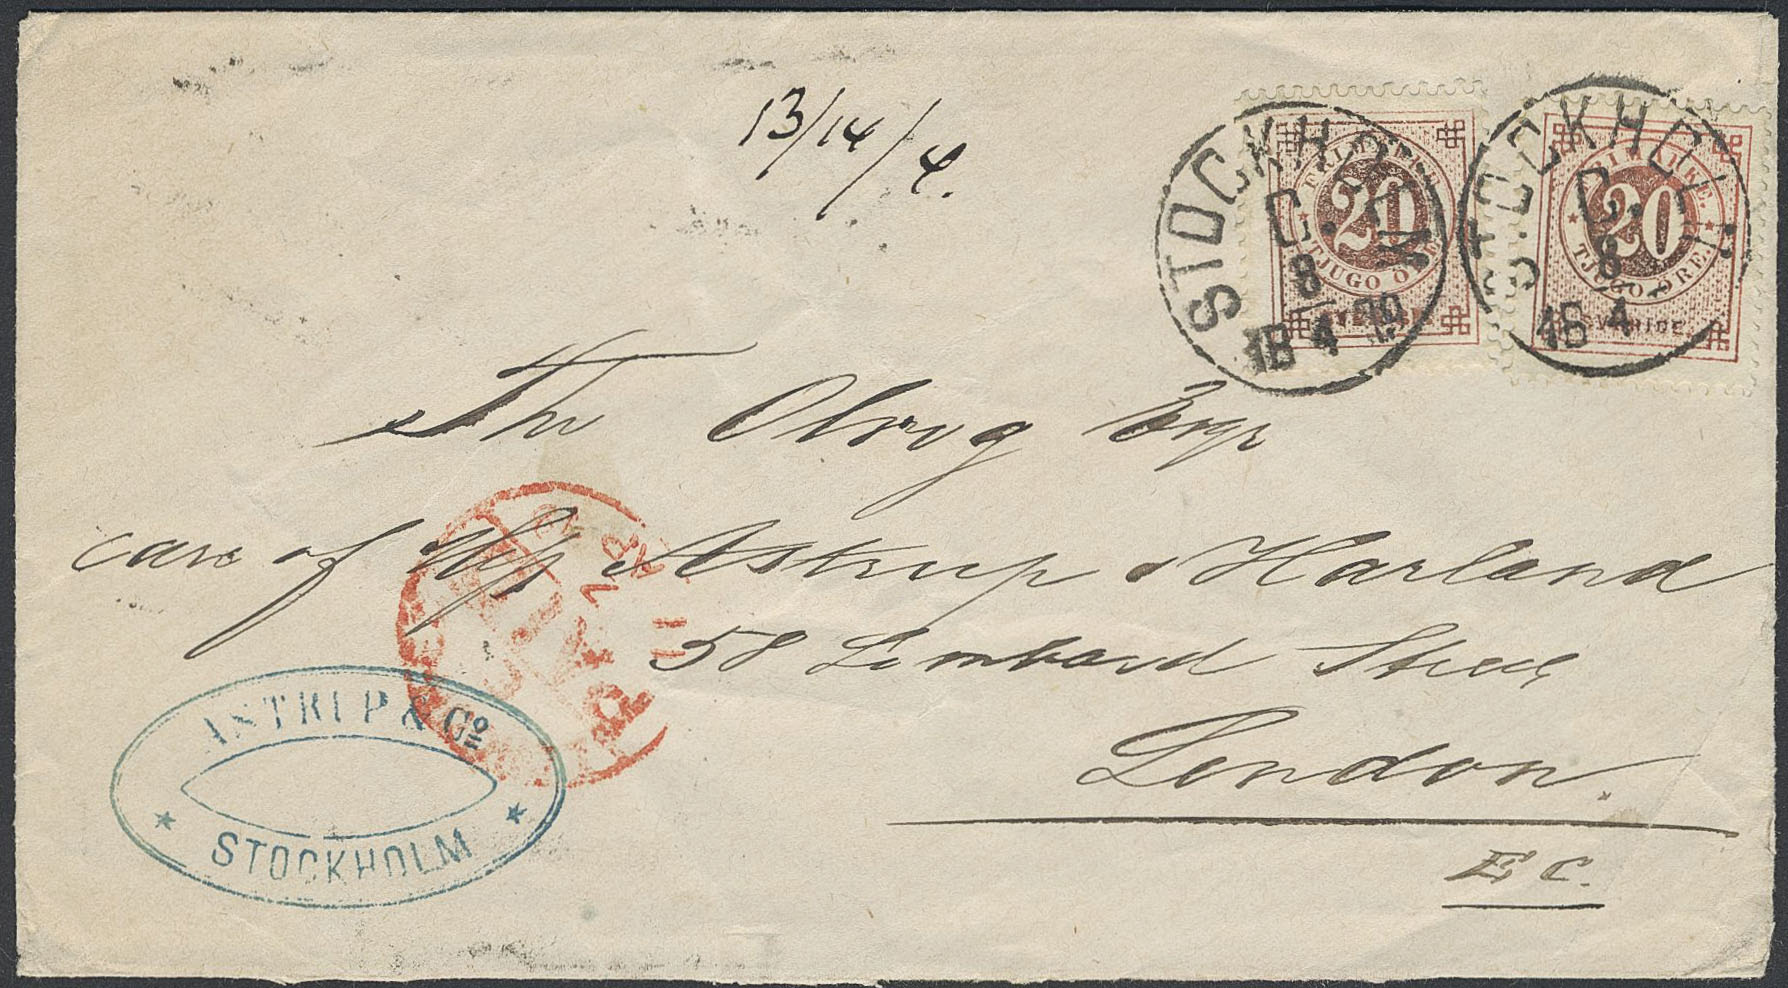 13/14/4.
STOCKHOLM
C.
8
18 4
FRIMÄRKE
20
TJUGO ÖRE
STOCKHOLM
C.
8
18 4
FRIMÄRKE.
20
TJUGO ÖRE
SVERIGE
Th Olrog Esqr
care of Astrup & Harland
58 Lombard Street
London.
E C.
ASTRUP & Co
STOCKHOLM